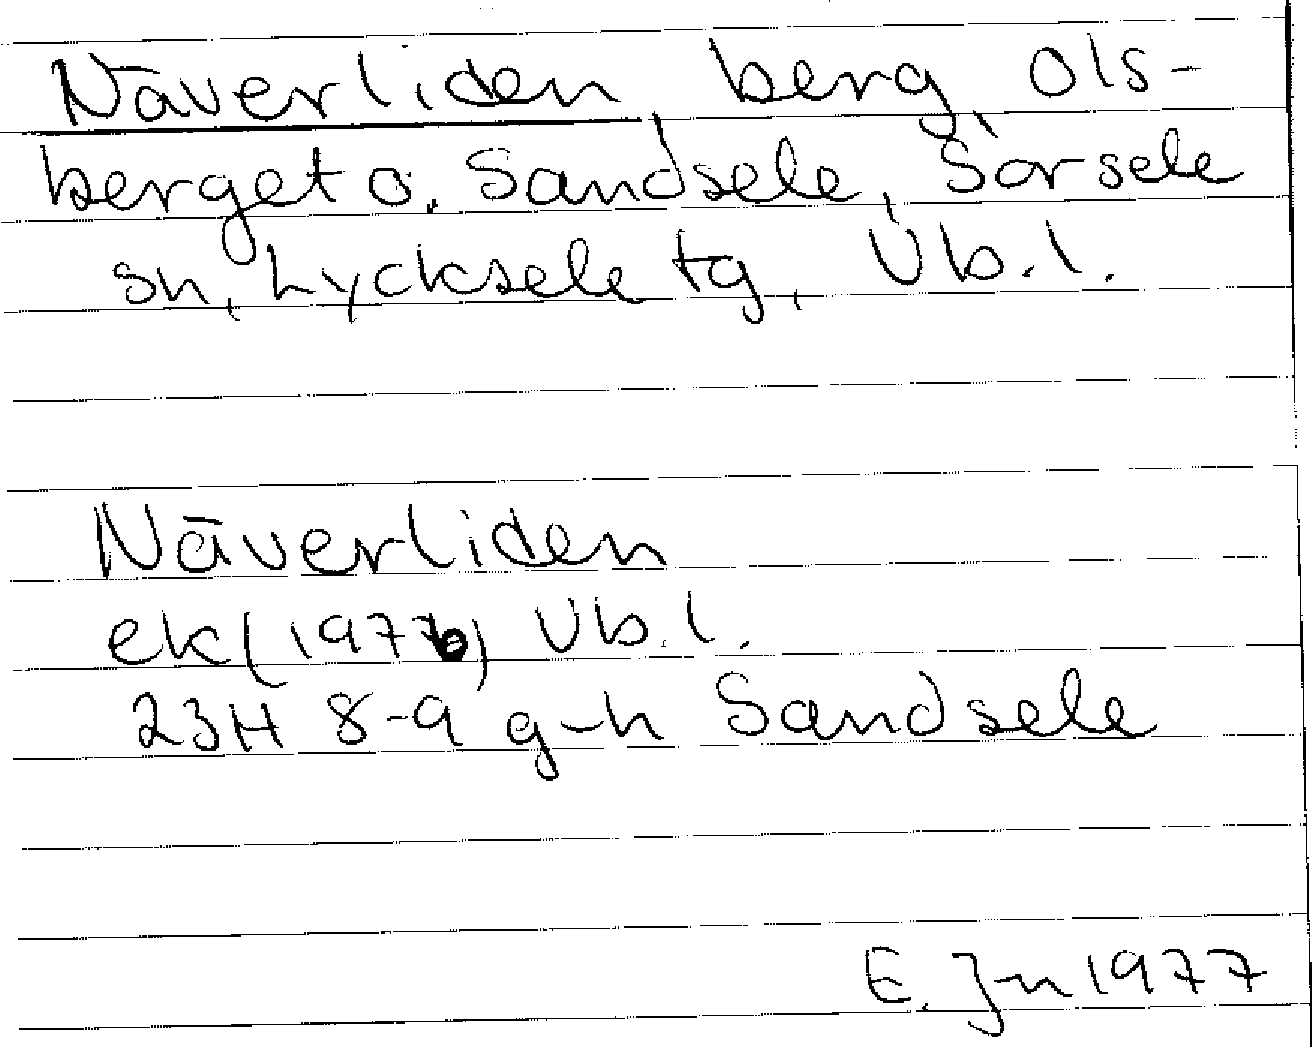 Näverliden berg, Ols-
berget o. Sandsele, Sorsele
sn, Lycksele tg, Vb.l.
Näverliden
ek(1976) Vb.l.
23H 8-9 g-h Sandsele
E. Jn 1977